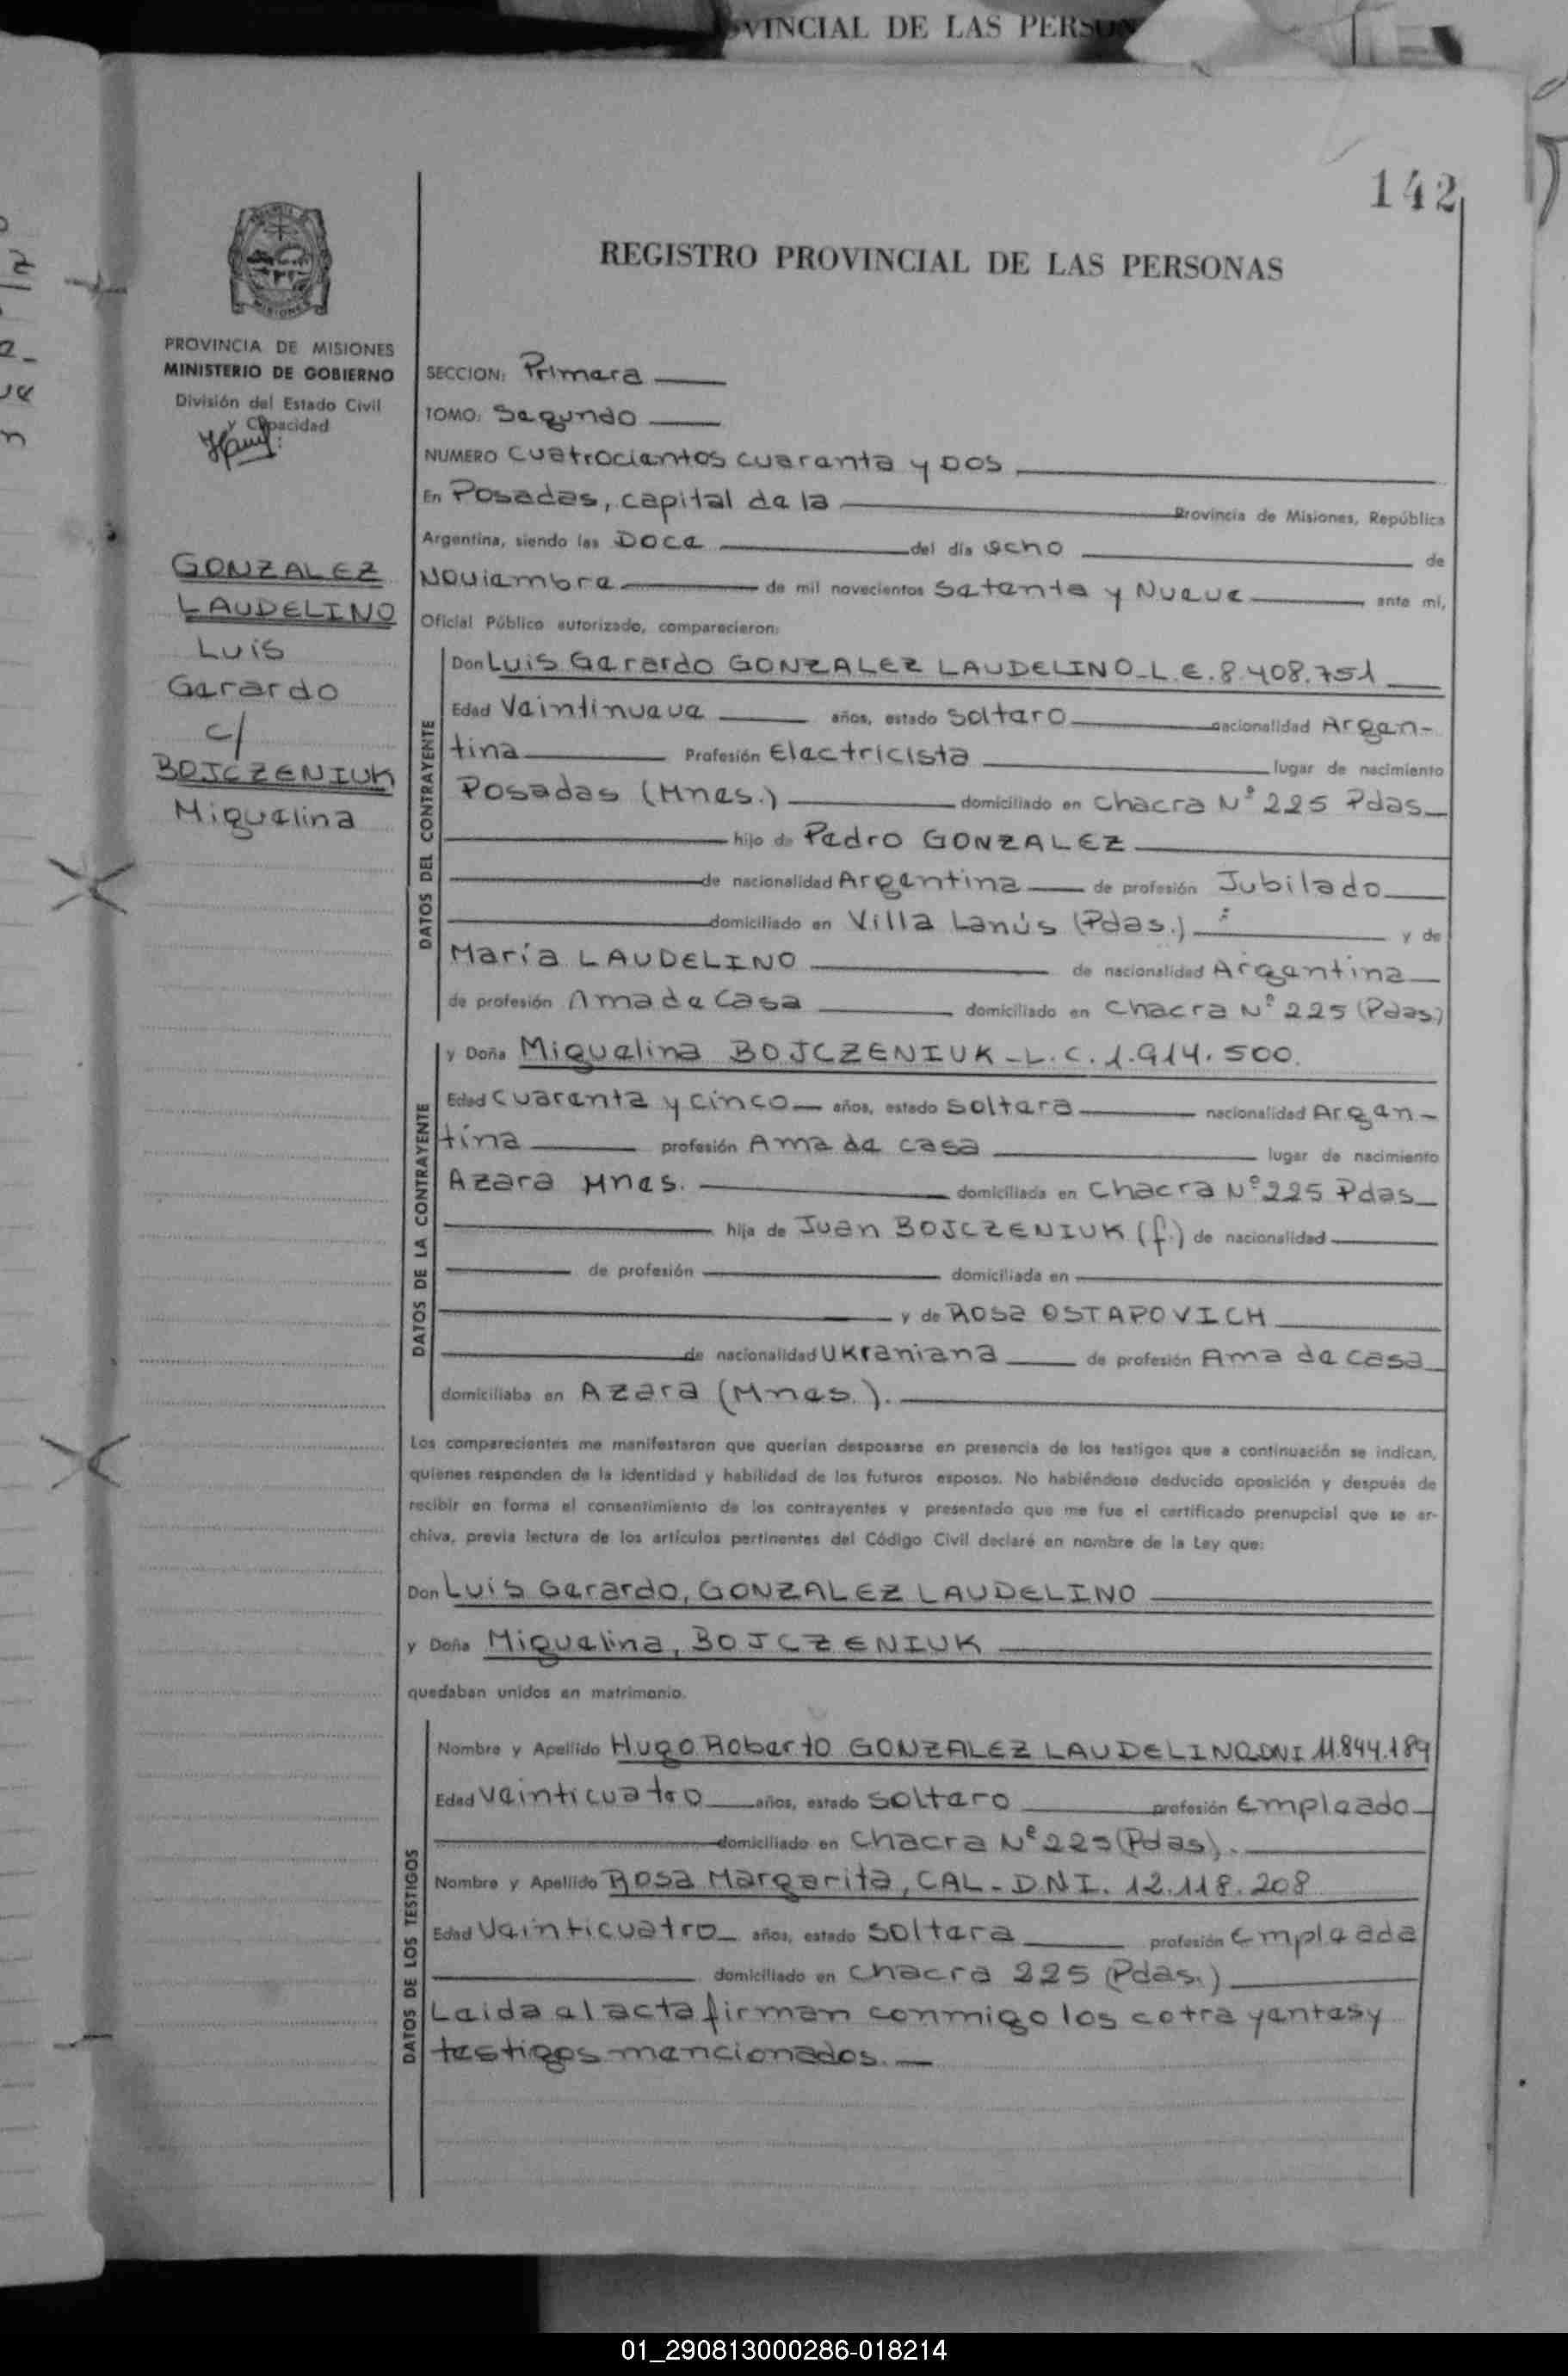 VINCIAL DE LAS PERSON
142
REGISTRO PROVINCIAL DE LAS PERSONAS
MISIONES
PROVINCIA DE MISIONES
MINISTERIO DE GOBIERNO
División del Estado Civil
y Capacidad
GONZALEZ
LAUDELINO
Luis
Gerardo
c/
BOJCZENIUK
Miguelina
SECCION: Primera
TOMO: Segundo
NUMERO Cuatrocientos cuarenta y DOS
En Posadas, capital de la Provincia de Misiones, República
Argentina, siendo las Doce del día ocho de
Noviembre de mil novecientos Setenta y Nueve ante mí,
Oficial Público autorizado, comparecieron:
DATOS DEL CONTRAYENTE
Don Luis Gerardo GONZALEZ LAUDELINO_L.E.8.408.751
Edad Veintinueve años, estado soltero nacionalidad Argen-
tina Profesión Electricista lugar de nacimiento
Posadas (Mnes.) domiciliado en Chacra Nº 225 Pdas
hijo de Pedro GONZALEZ
de nacionalidad Argentina de profesión Jubilado
domiciliado en Villa Lanús (Pdas.) y de
María LAUDELINO de nacionalidad Argentina
de profesión Ama de Casa domiciliado en Chacra Nº 225 (Pdas.)
DATOS DE LA CONTRAYENTE
y Doña Miguelina BOJCZENIUK - L.C. 1.914.500.
Edad cuarenta y cinco años, estado soltera nacionalidad Argen-
tina profesión Ama de casa lugar de nacimiento
Azara Mnes. domiciliada en Chacra Nº 225 Pdas
hija de Juan BOJCZENIUK (f.) de nacionalidad
de profesión domiciliada en
y de Rosa OSTAPOVICH
de nacionalidad Ukraniana de profesión Ama de casa
domiciliaba en Azara (Mnes.).
Los comparecientes me manifestaron que querían desposarse en presencia de los testigos que a continuación se indican,
quienes responden de la identidad y habilidad de los futuros esposos. No habiéndose deducido oposición y después de
recibir en forma el consentimiento de los contrayentes y presentado que me fue el certificado prenupcial que se ar-
chiva, previa lectura de los artículos pertinentes del Código Civil declaré en nombre de la Ley que:
Don Luis Gerardo, GONZALEZ LAUDELINO
y Doña Miguelina, BOJCZENIUK
quedaban unidos en matrimonio.
DATOS DE LOS TESTIGOS
Nombre y Apellido Hugo Roberto GONZALEZ LAUDELINO_DNI 11.844.189
Edad veinticuatro años, estado soltero profesión Empleado
domiciliado en Chacra Nº 225 (Pdas).
Nombre y Apellido Rosa Margarita, CAL - D.N.I. 12.118.208
Edad Veinticuatro años, estado soltera profesión Empleada
domiciliado en Chacra 225 (Pdas.)
Leida el acta firman conmigo los cotrayentes y
testigos mencionados.
01_290813000286-018214